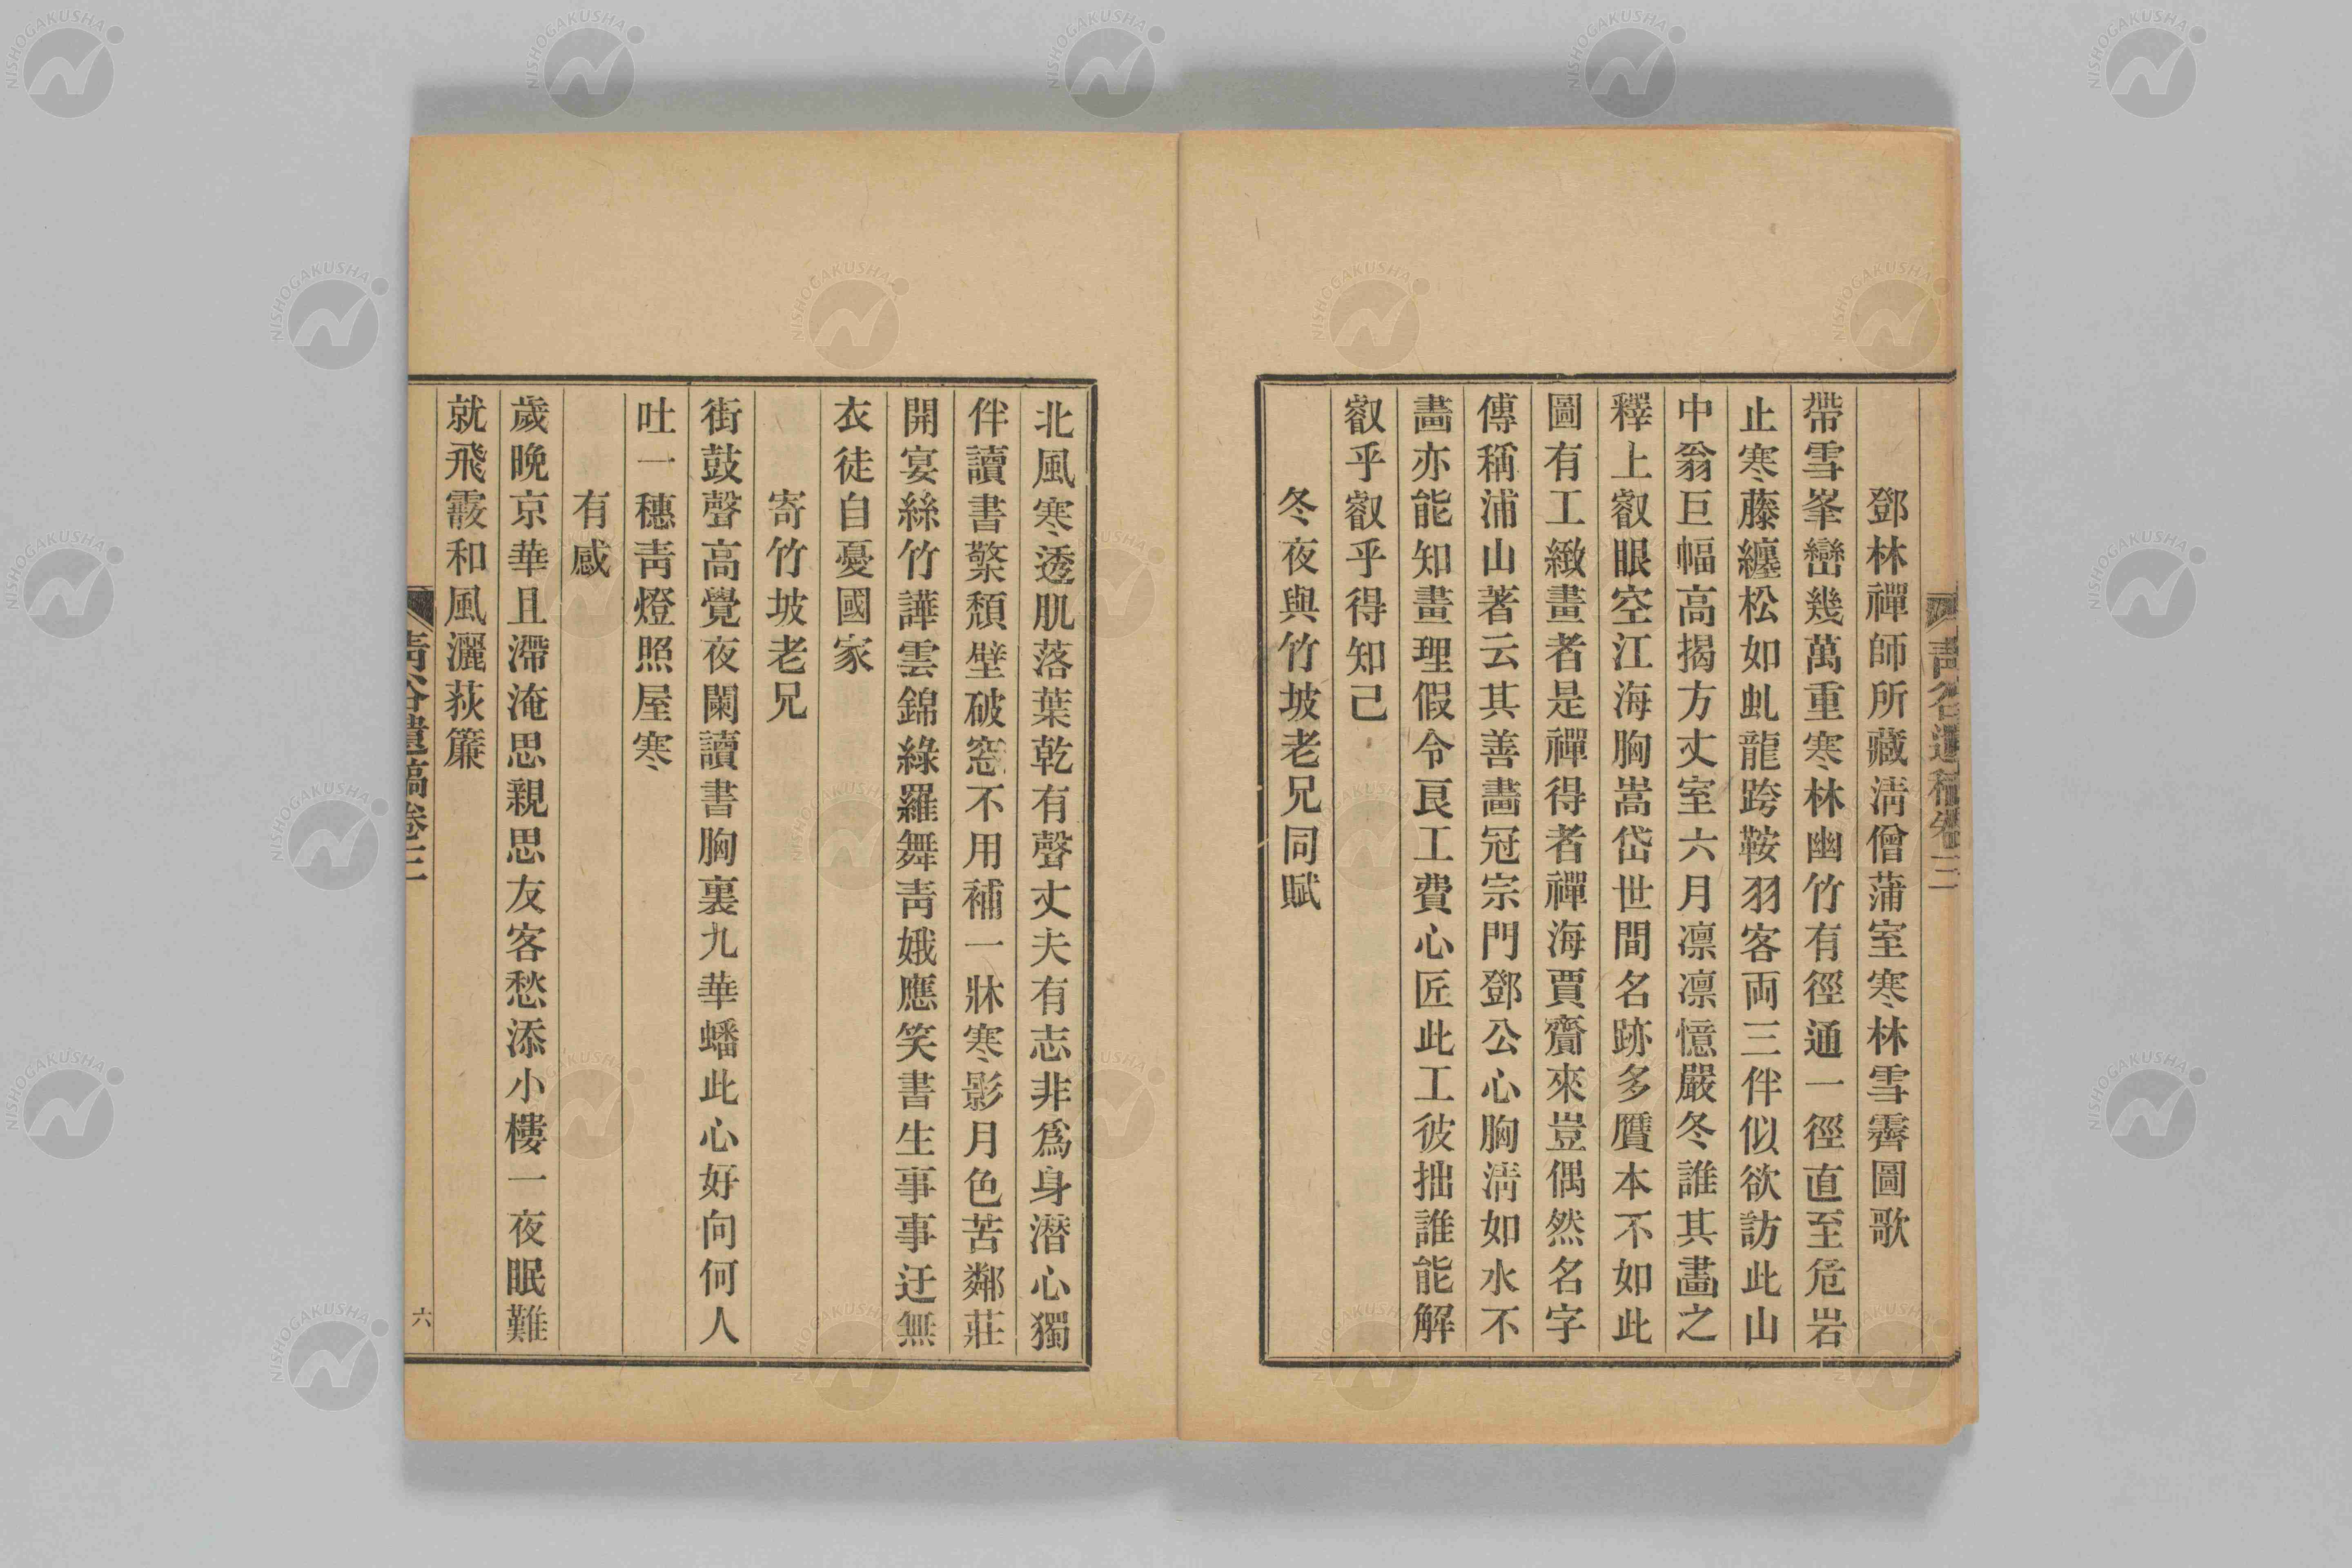 鄧林禪師所藏淸僧蒲室寒林雪霽圖歌
帶雪峯巒幾萬重寒林幽竹有徑通一徑直至危岩
止寒藤纏松如虬龍跨鞍羽客両三伴似欲訪此山
中翁巨幅高揭方丈室六月凛凛憶嚴冬誰其畵之
釋上叡眼空江海胸嵩岱世間名跡多贋本不如此
圖有工緻畫者是禪得者禪海賈齎來豈偶然名字
傳稱浦山著云其善畵冠宗門鄧公心胸淸如水不
畵亦能知畫理假令良工費心匠此工彼拙誰能解
叡乎叡乎得知己
冬夜與竹坡老兄同賦
北風寒透肌落葉乾有聲丈夫有志非爲身潜心獨
伴讀書檠頽壁破窓不用補一牀寒影月色苦鄰莊
開宴絲竹譁雲錦綠羅舞靑娥應笑書生事事迂無
衣徒自憂國家
寄竹坡老兄
街鼓聲高覺夜闌讀書胸裏九華蟠此心好向何人
吐一穗靑燈照屋寒
有感
歲晩京華且滯淹思親思友客愁添小樓一夜眠難
就飛霰和風灑荻簾
靑谷遺稿卷三
六
NISHOGAKUSHA